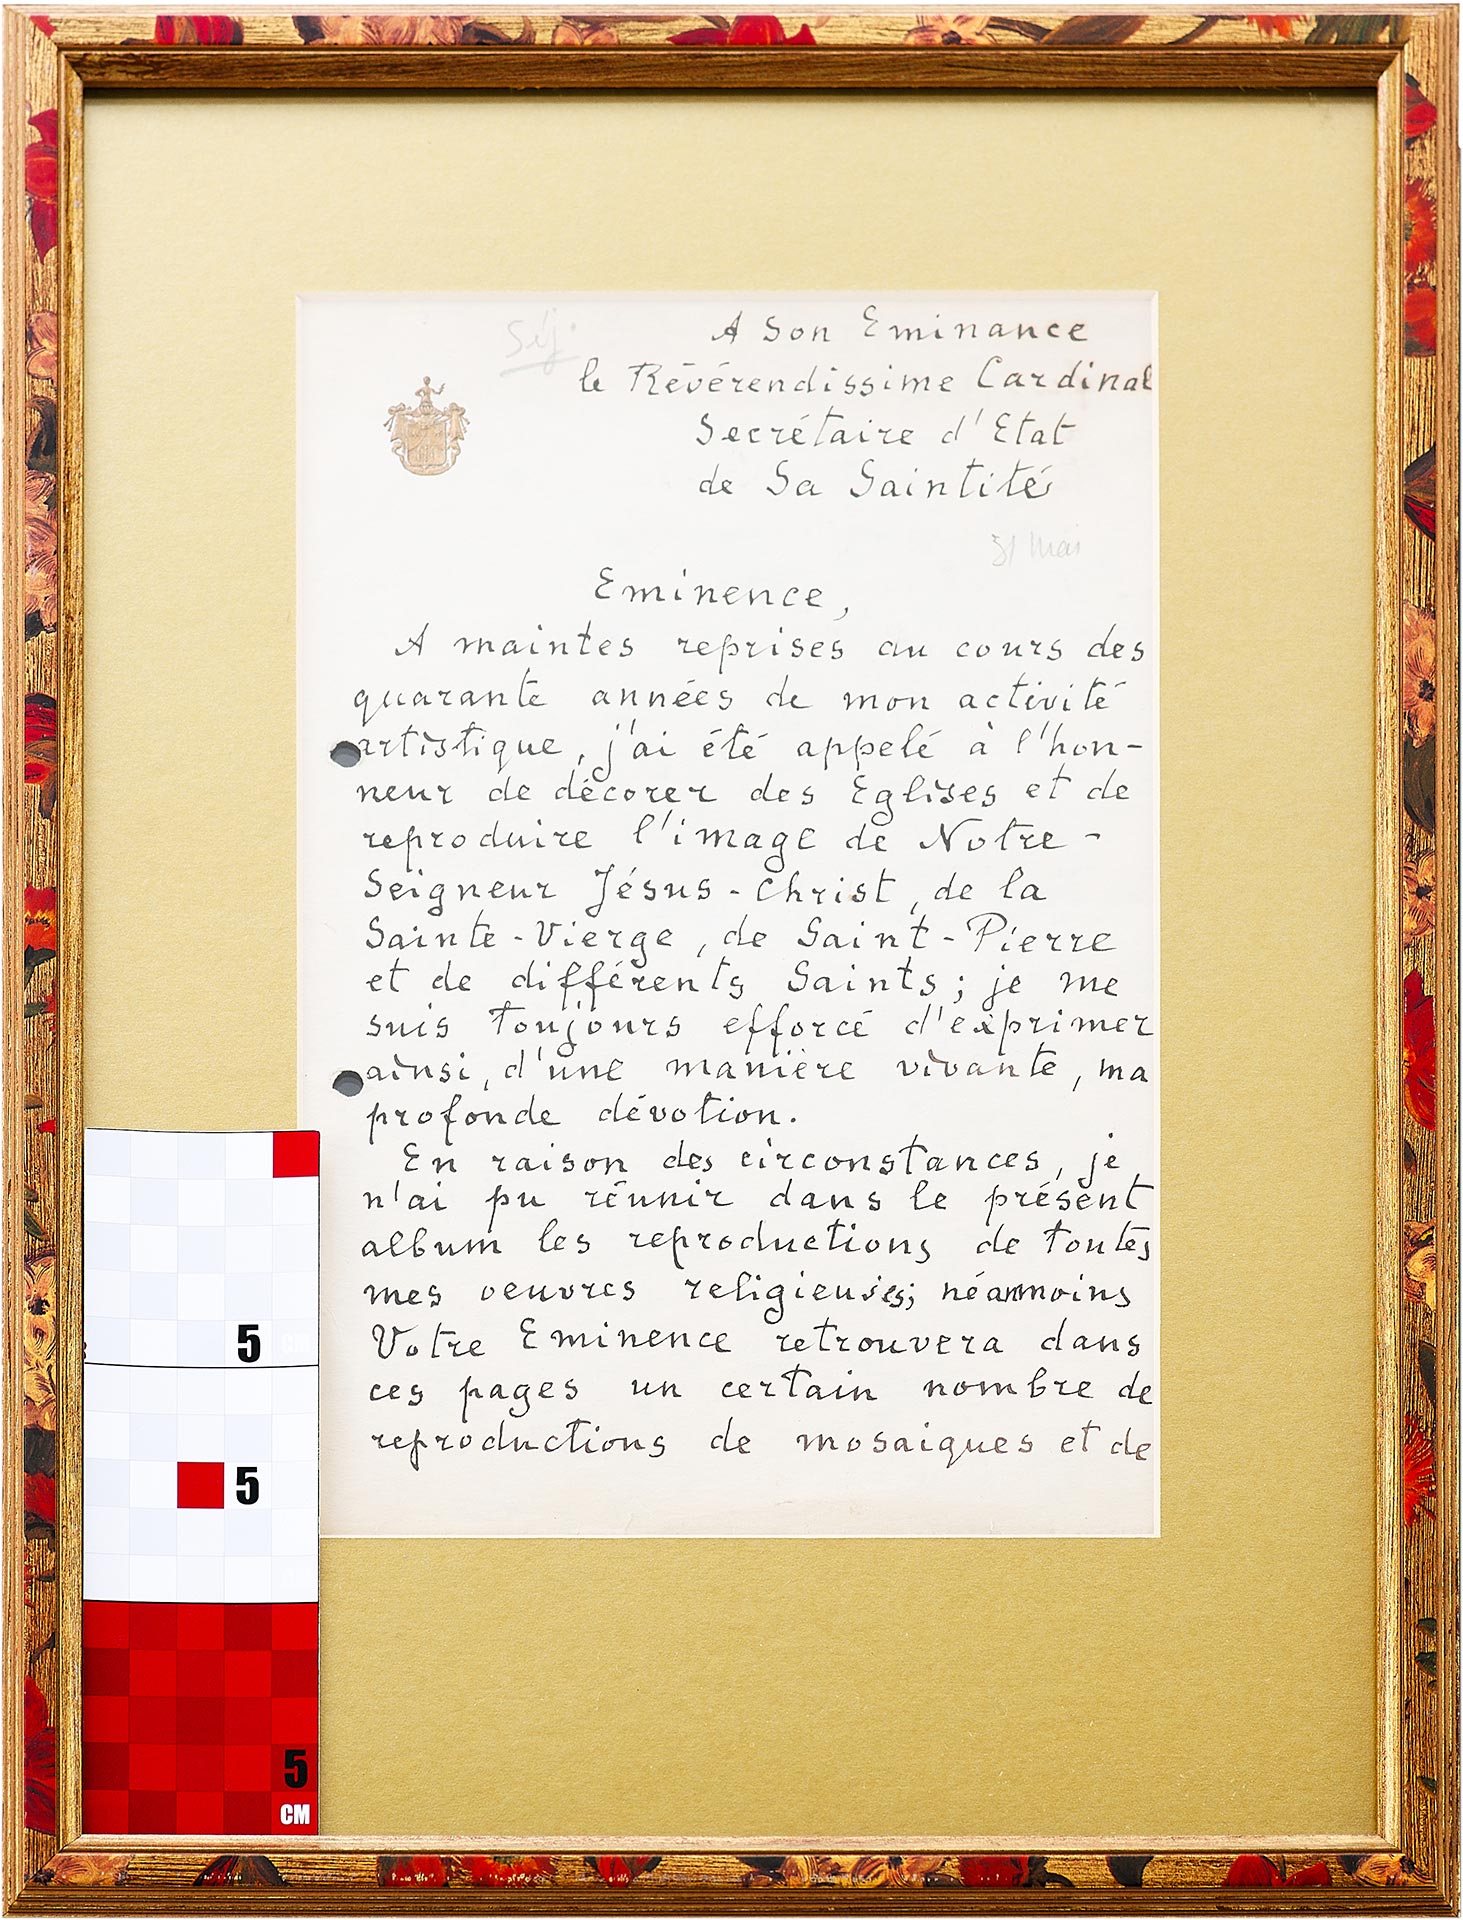 A Son Eminance
le Révérendissime Cardinal
Secrétaire d'Etat
de Sa Saintité
31 Mai
Eminence,
A maintes reprises au cours des
quarante années de mon activité
artistique, j'ai été appelé à l'hon-
neur de décorer des Eglises et de
reproduire l'image de Notre-
Seigneur Jésus-Christ, de la
Sainte-Vierge, de Saint-Pierre
et de différents Saints; je me
suis toujours efforcé d'exprimer
ainsi, d'une manière vivante, ma
profonde dévotion.
En raison des circonstances, je
n'ai pu réunir dans le présent
album les reproductions de toutes
mes oeuvres religieuses; néanmoins
Votre Eminence retrouvera dans
ces pages un certain nombre de
reproductions de mosaiques et de
5 CM
5
5
CM